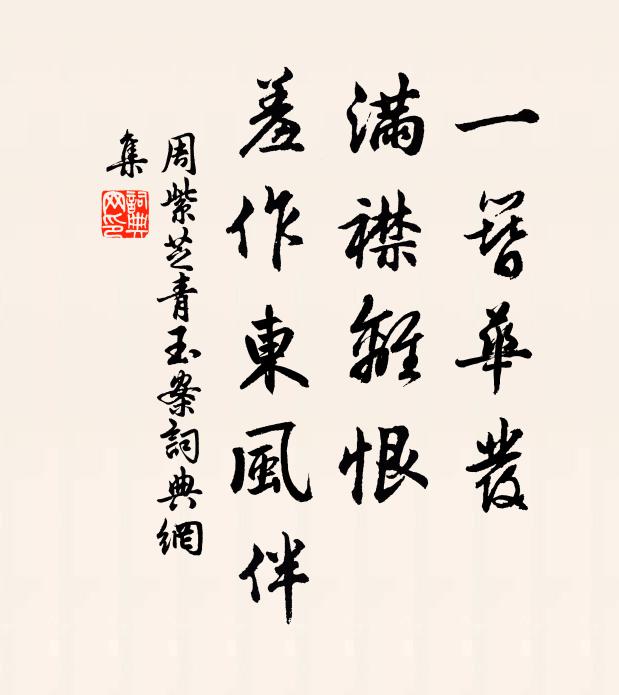 一簪華發
滿襟離恨
羞作東風伴
周紫芝青玉案詞典網
集
詞典網印